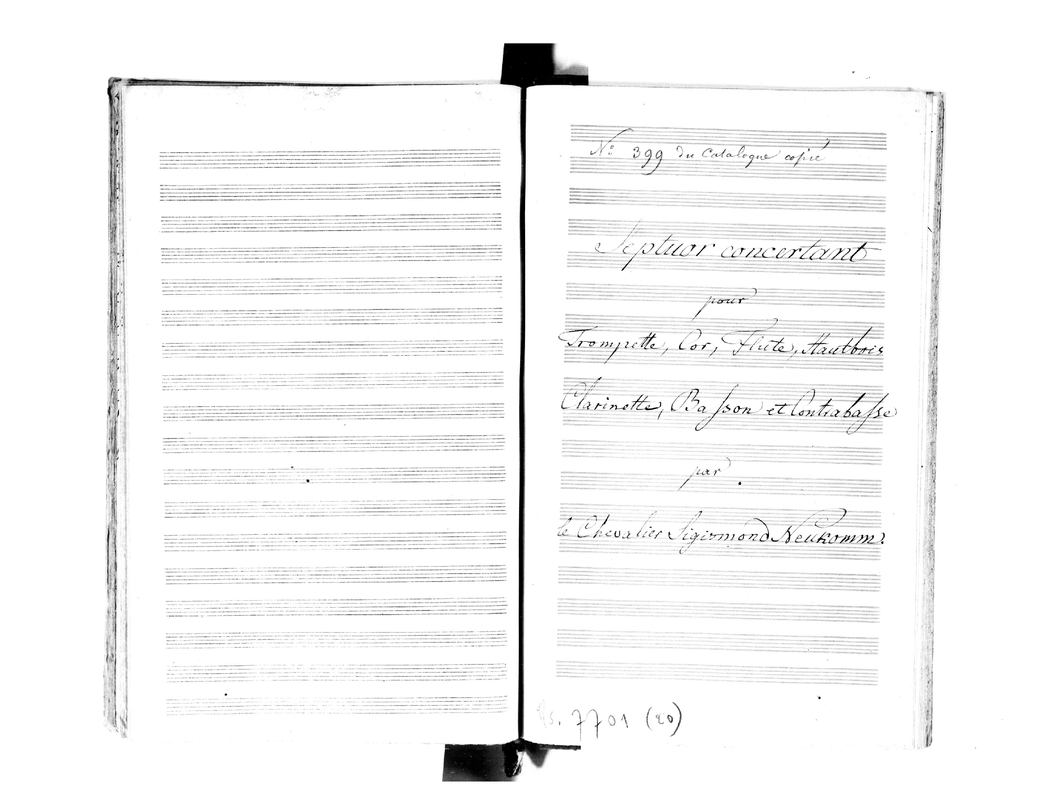 No 399 du Catalogue copié
Septuor concertant
pour
Trompette, Cor, Flûte, Hautbois
Clarinette, Basson et Contrabasse
par
le Chevalier Sigismond Neukomm.
Ms. 7701 (20)